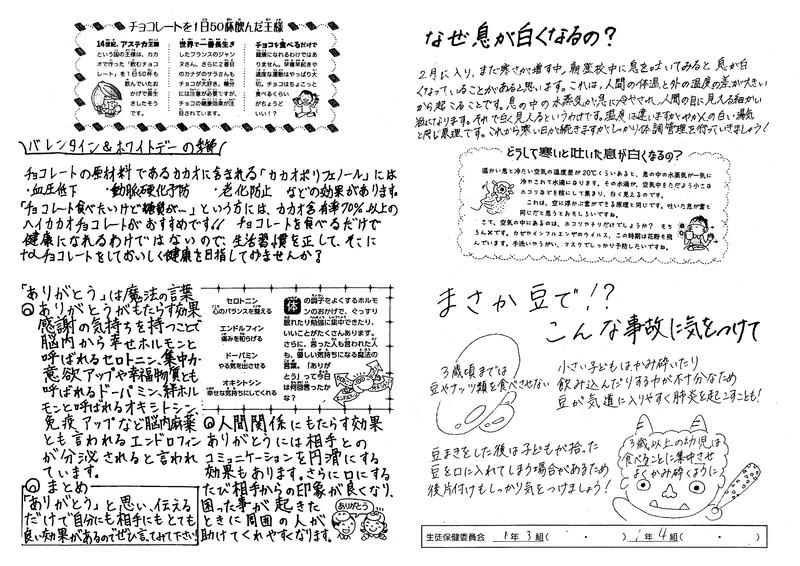 チョコレートを1日50杯飲んだ王様
14世紀、アステカ王国
という国の王様は、カカ
オで作った「飲むチョコ
レート」を1日50杯も
飲んでいたお
かげで長生
きしたそう
です。
世界で一番長生き
したフランスのジャン
ヌさん、さらに2番目
のカナダのサラさんも
チョコが大好き。糖分
には注意が必要ですが、
チョコの健康効果が注
目されています。
チョコを食べるだけで
健康になれるわけではあ
りません。早寝早起きや
適度な運動はやっぱり大
切。チョコはちょこっと
食べるくらい
がちょうど
いい!?
バレンタイン&ホワイトデーの季節
チョコレートの原材料であるカカオに含まれる「カカオポリフェノール」には
・血圧低下 ・動脈硬化予防 ・老化防止 などの効果があります。
「チョコレート食べたいけど糖質が…」という方には、カカオ含有率70%以上の
ハイカカオチョコレートがおすすめです!! チョコレートを食べるだけで
健康になれるわけではないので、生活習慣を正して、そこに
+αチョコレートをしておいしく健康を目指してみませんか?
「ありがとう」は魔法の言葉
◎ありがとうがもたらす効果
感謝の気持ちを持つことで
脳内から幸せホルモンと
呼ばれるセロトニン、集中力・
意欲アップや幸福物質とも
呼ばれるドーパミン、絆ホル
モンと呼ばれるオキシトシン、
免疫アップなど脳内麻薬
とも言われるエンドロフィン
が分泌されると言われ
ています。
◎まとめ
「ありがとう」と思い、伝える
だけで自分にも相手にもとても
良い効果があるのでぜひ言ってみて下さい!
セロトニン
心のバランスを整える
エンドルフィン
痛みを和らげる
ドーパミン
やる気を出させる
オキシトシン
幸せな気持ちにしてくれる
体の調子をよくするホルモ
ンのおかげで、ぐっすり
眠れたり勉強に集中できたり、
いいことがたくさんあります。
さらに、言った人も言われた人
も、優しい気持ちになる魔法の
言葉。「ありが
とう」って今日
は何回言ったか
な?
◎人間関係にもたらす効果
ありがとうには相手との
コミュニケーションを円滑にする
効果もあります。さらに口にする
たび相手からの印象が良くなり、
困った事が起きた
ときに周囲の人が
助けてくれやすくなります。
ありがとう
なぜ息が白くなるの?
2月に入り、まだ寒さが増す中、朝登校中に息を吐いてみると息が白
くなっていることがあると思います。これは、人間の体温と外の温度の差が大きい
から起こることです。息の中の水蒸気が急に冷やされ、人間の目に見える細かい
油になります。それで白く見えるわけです。温度は違いますがやかんの白い湯気
と同じ原理です。これから寒い日が続きますがしっかり体調管理を行っていきましょう!
どうして寒いと吐いた息が白くなるの?
温かい息と冷たい空気の温度差が20℃くらいあると、息の中の水蒸気が一気に
冷やされて水滴になります。その水滴が、空気中をただよう小さな
ホコリなどを核にして集まり、白く見えるのです。
これは、空に浮かぶ雲ができる原理と同じです。吐いた息が雲と
同じだと思うとおもしろいですね。
さて、空気の中にあるのは、ホコリやチリだけでしょうか? もち
ろん×です。カゼやインフルエンザのウイルス、この時期は花粉も飛
んでいます。手洗いやうがい、マスクでしっかり予防したいですね。
まさか豆で!?
こんな事故に気をつけて
3歳頃までは
豆やナッツ類を食べさせない
小さい子どもはかみ砕いたり
飲み込んだりする力が不十分なため
豆が気道に入りやすく肺炎を起こすことも!
豆まきをした後は子どもが拾った
豆を口に入れてしまう場合があるため
後片付けもしっかり気をつけましょう!
3歳以上の幼児は
食べることに集中させ
よくかみ砕くように
生徒保健委員会 1年3組( ・ ) 1年4組( ・ )